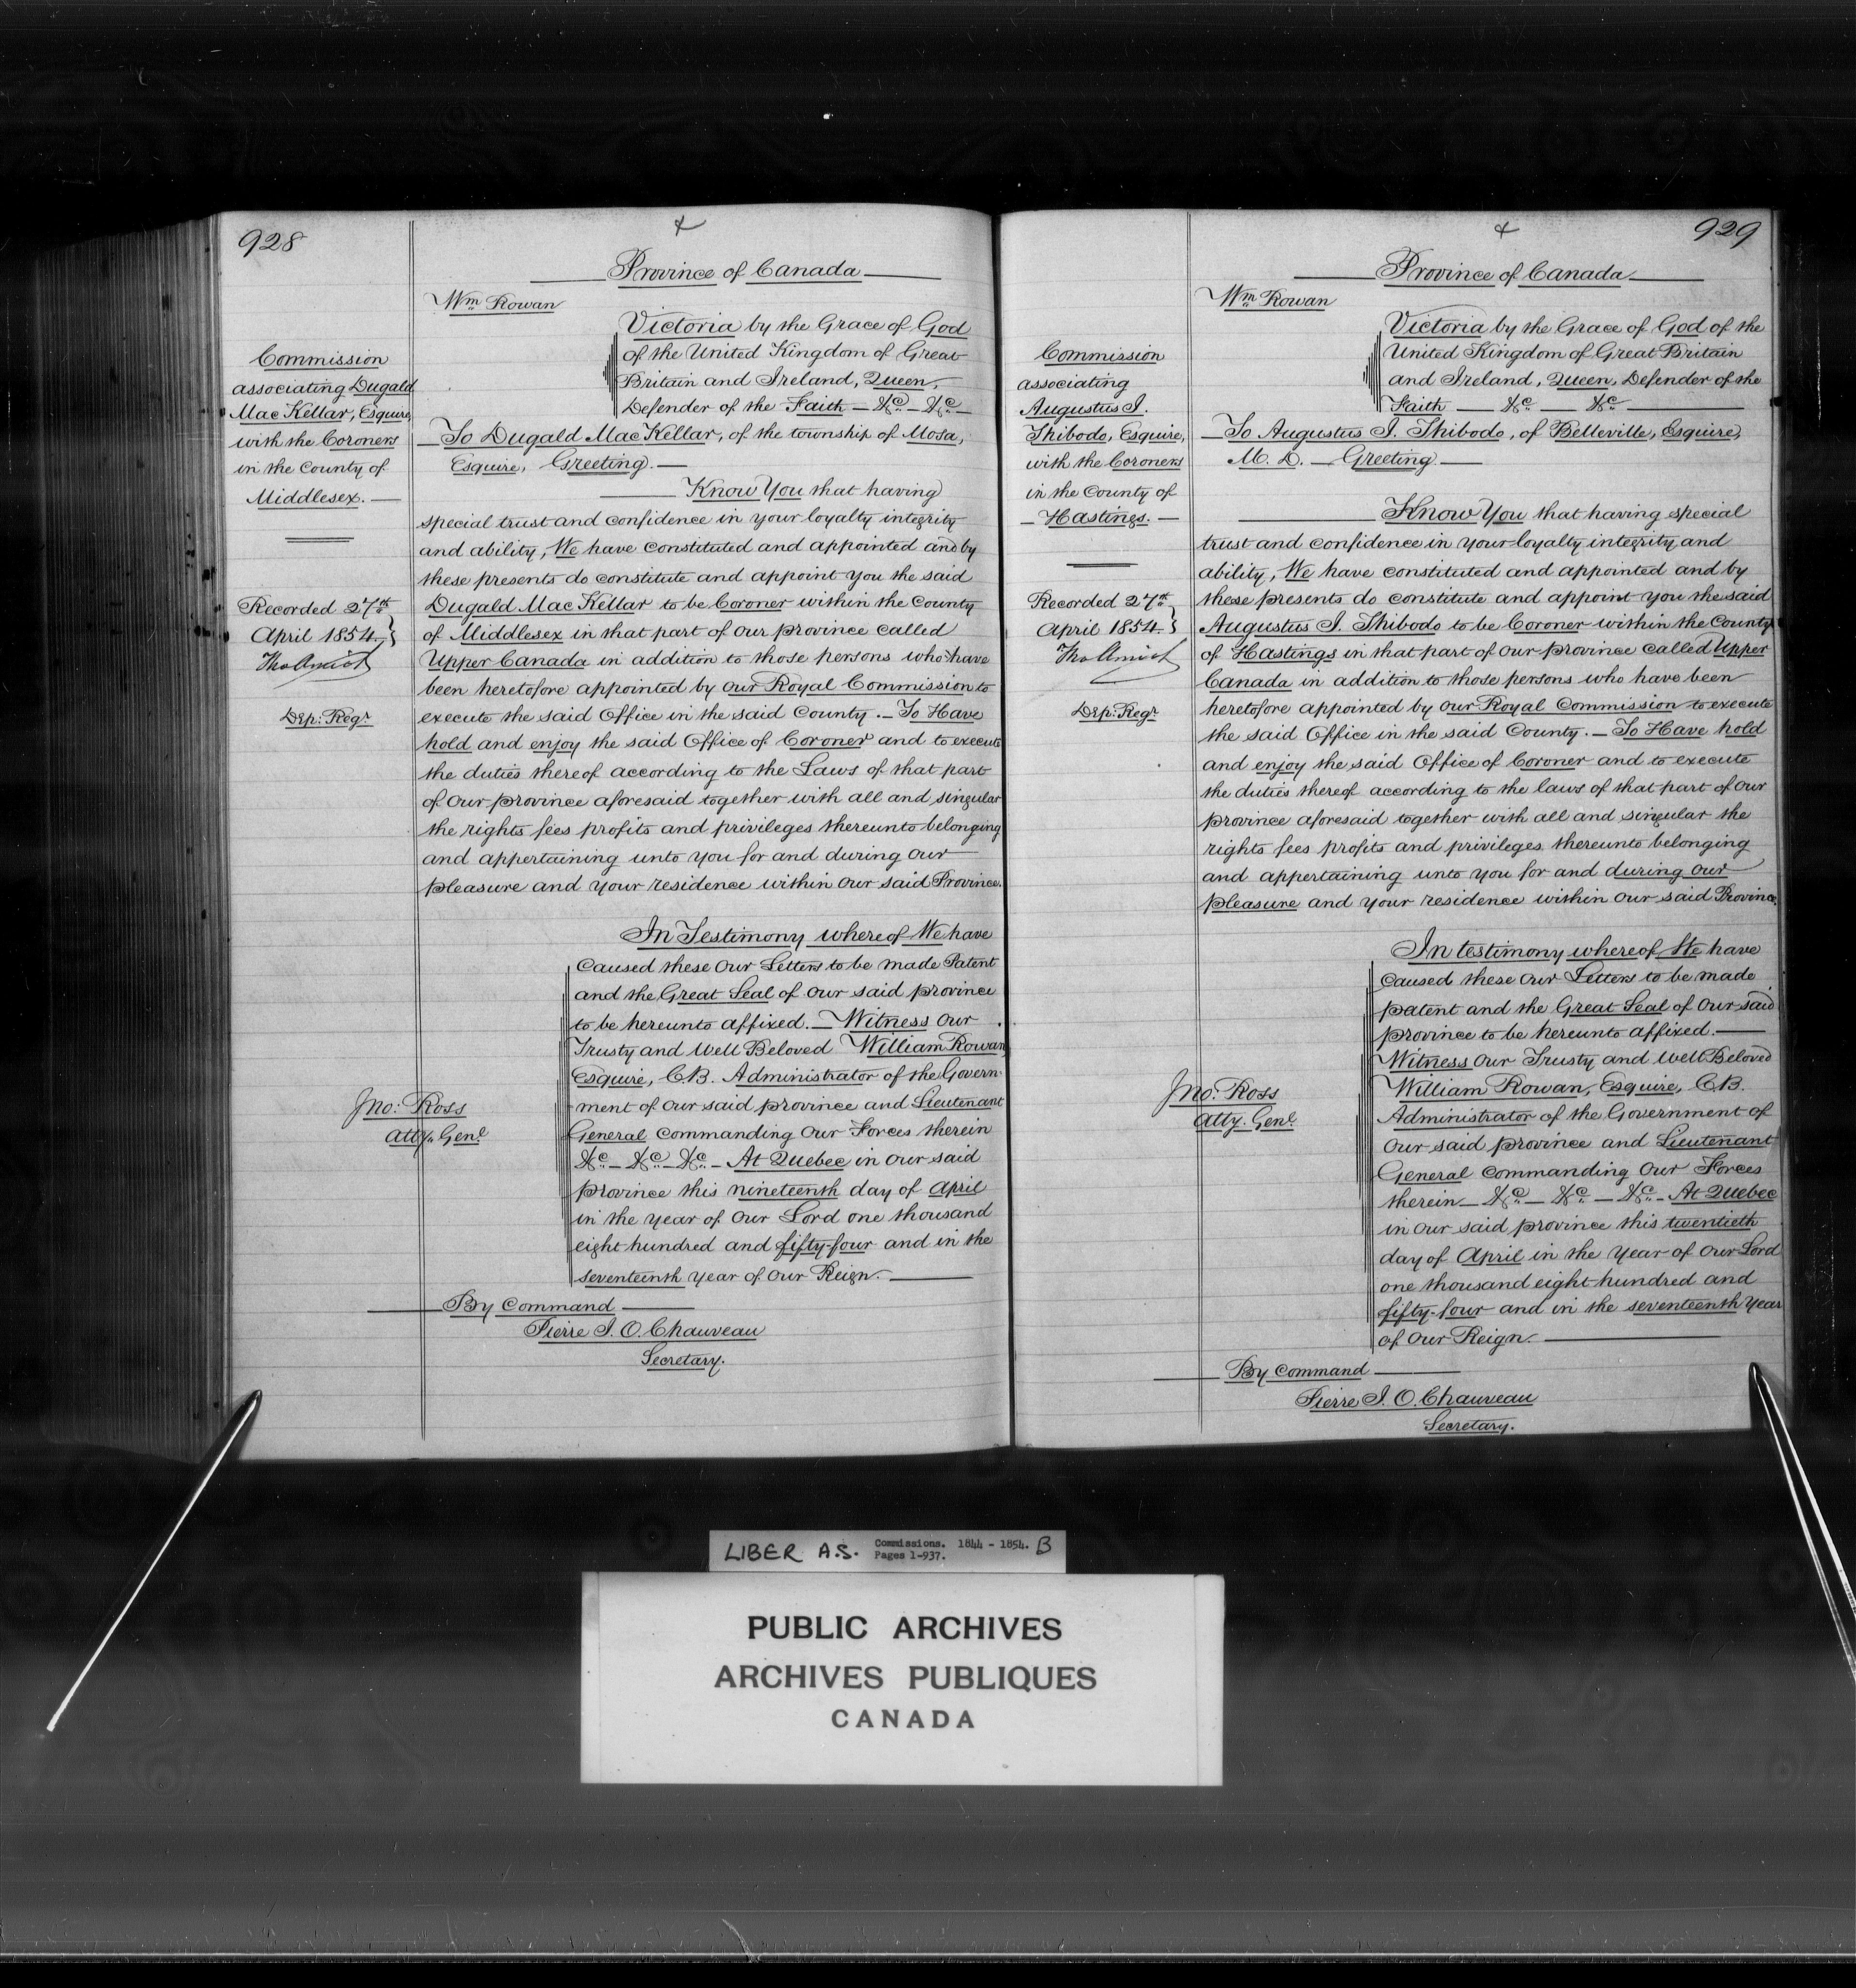 928
Province of Canada
Wm Rowan
Victoria by the Grace of God
of the United Kingdom of Great
Britain and Ireland, Queen,
Defender of the Faith — &c — &c —
Commission
associating Dugald
Mac Kellar, Esquire,
with the Coroners
in the County of
Middlesex. —
Recorded 27th
April 1854. }
Dep: Regr
— To Dugald Mac Kellar, of the township of Mosa,
Esquire, Greeting. —
Know You that having
special trust and confidence in your loyalty integrity
and ability, We have constituted and appointed and by
these presents do constitute and appoint you the said
Dugald Mac Kellar to be Coroner within the County
of Middlesex in that part of our province called
Upper Canada in addition to those persons who have
been heretofore appointed by our Royal Commission to
execute the said Office in the said County. — To Have
hold and enjoy the said Office of Coroner and to execute
the duties thereof according to the Laws of that part
of our province aforesaid together with all and singular
the rights fees profits and privileges thereunto belonging
and appertaining unto you for and during our
pleasure and your residence within our said Province.
In Testimony whereof We have
caused these our Letters to be made Patent
and the Great Seal of our said province
to be hereunto affixed. — Witness our
Trusty and Well Beloved William Rowan
Esquire, C.B. Administrator of the Govern-
ment of our said province and Lieutenant
General commanding our Forces therein
&c — &c — &c — At Quebec in our said
province this nineteenth day of April
in the year of our Lord one thousand
eight hundred and fifty-four and in the
seventeenth year of our Reign. —
Jno: Ross
Atty. Genl
By Command
Pierre J. O. Chauveau
Secretary.
929
Province of Canada
Wm Rowan
Victoria by the Grace of God of the
United Kingdom of Great Britain
and Ireland, Queen, Defender of the
Faith — &c — &c —
Commission
associating
Augustus J.
Thibodo, Esquire,
with the Coroners
in the County of
— Hastings. —
Recorded 27th
April 1854. }
Dep: Regr
— To Augustus J. Thibodo, of Belleville, Esquire,
M. D. — Greeting —
Know You that having special
trust and confidence in your loyalty integrity and
ability, We have constituted and appointed and by
these presents do constitute and appoint you the said
Augustus J. Thibodo to be Coroner within the County
of Hastings in that part of our province called Upper
Canada in addition to those persons who have been
heretofore appointed by our Royal Commission to execute
the said Office in the said County. — To Have hold
and enjoy the said Office of Coroner and to execute
the duties thereof according to the laws of that part of our
province aforesaid together with all and singular the
rights fees profits and privileges thereunto belonging
and appertaining unto you for and during our
pleasure and your residence within our said Province.
In testimony whereof We have
caused these our Letters to be made
patent and the Great Seal of our said
province to be hereunto affixed. —
Witness our Trusty and Well Beloved
William Rowan, Esquire, C.B.
Administrator of the Government of
our said province and Lieutenant
General commanding our Forces
therein — &c — &c — &c — At Quebec
in our said province this twentieth
day of April in the year of our Lord
one thousand eight hundred and
fifty-four and in the seventeenth year
of our Reign. —
Jno: Ross
Atty. Genl
By Command
Pierre J. O. Chauveau
Secretary.
LIBER A.S. Commissions. 1844 - 1854. B
Pages 1-937.
PUBLIC ARCHIVES
ARCHIVES PUBLIQUES
CANADA